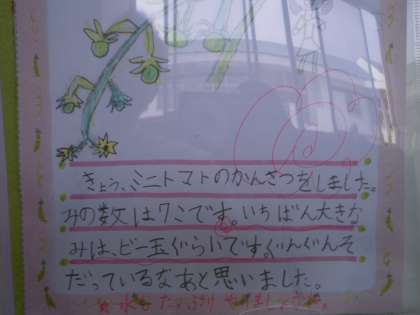 きょう、ミニトマトのかんさつをしました。
みの数は7こです。いちばん大きな
みは、ビー玉ぐらいです。ぐんぐんそ
だっているなあと思いました。